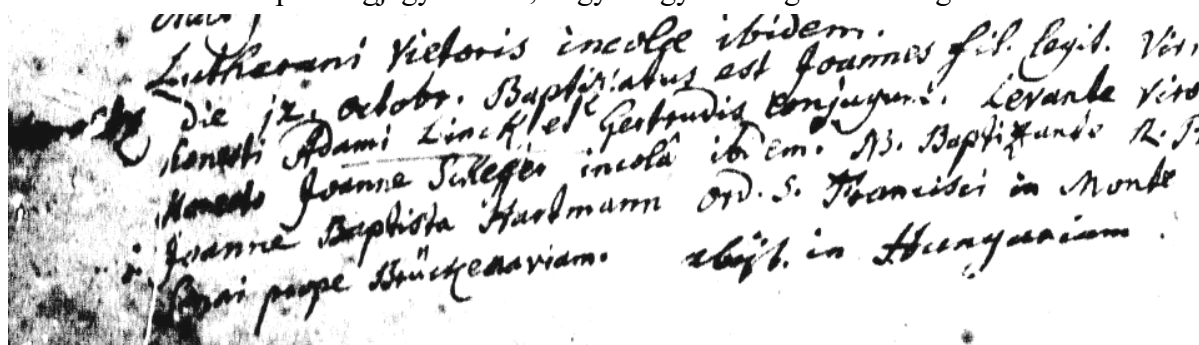 Lutherani Vietoris incolæ ibidem.
die 12. octobr. Baptizatus est Joannes fil. legit. Viri
honesti Adami Linck et Gertrudis conjugum. Levante Viro
Honesto Joanne Schleger incolâ ibidem. NB. Baptizante R. P.
Joanne Baptista Hartmann ord. S. Francisci in Monte
prope Brückenaviam. abijt. in Hungariam.